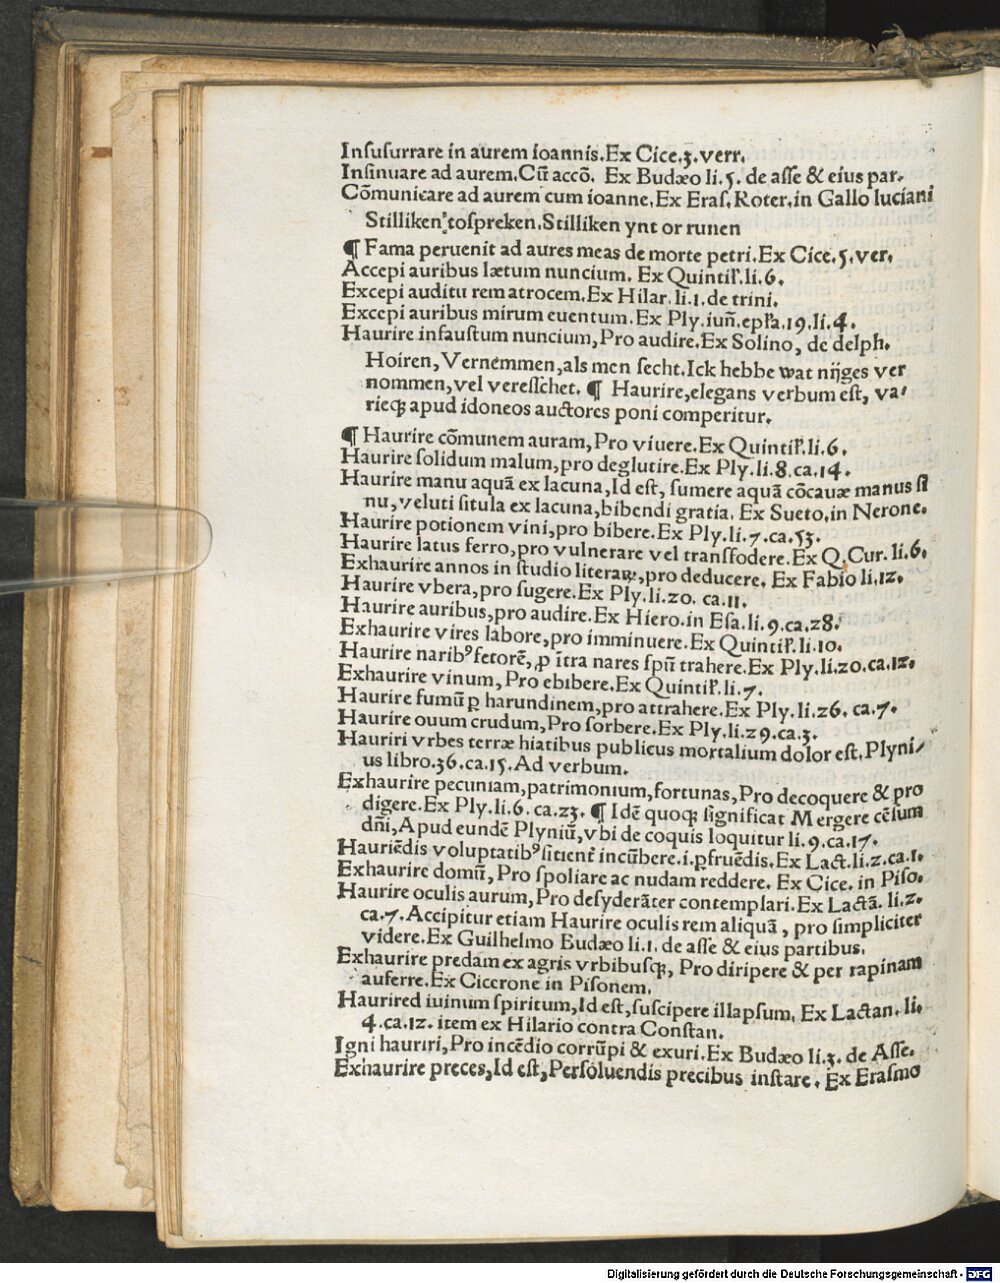 Inſuſurrare in aurem ioannis. Ex Cice. 3. verr.
Inſinuare ad aurem. Cū accō. Ex Budæo li. 5. de aſſe & eius par.
Cōmunicare ad aurem cum ioanne, Ex Eraſ. Roter. in Gallo luciani
Stilliken toſpreken. Stilliken ynt or runen
¶ Fama peruenit ad aures meas de morte petri. Ex Cice. 5. ver.
Accepi auribus lætum nuncium. Ex Quintil̄. li. 6.
Excepi auditu rem atrocem. Ex Hilar. li. 1. de trini.
Excepi auribus mirum euentum. Ex Ply. iuñ. epl̄a. 19. li. 4.
Haurire infauſtum nuncium, Pro audire. Ex Solino, de delph.
Hoiren, Vernemmen, als men ſecht. Ick hebbe wat nijges ver
nommen, vel vereſſchet. ¶ Haurire, elegans verbum eſt, va-
rieqꝫ apud idoneos auctores poni comperitur.
¶ Haurire cōmunem auram, Pro viuere. Ex Quintil̄. li. 6.
Haurire ſolidum malum, pro deglutire. Ex Ply. li. 8. ca. 14.
Haurire manu aquā ex lacuna, Id eſt, ſumere aquā cōcauæ manus ſi
nu, veluti ſitula ex lacuna, bibendi gratia. Ex Sueto. in Nerone.
Haurire potionem vini, pro bibere. Ex Ply. li. 7. ca. 53.
Haurire latus ferro, pro vulnerare vel transfodere. Ex Q. Cur. li. 6.
Exhaurire annos in ſtudio literaꝝ, pro deducere. Ex Fabio li. 12.
Haurire vbera, pro ſugere. Ex Ply. li. 20. ca. 11.
Haurire auribus, pro audire. Ex Hiero. in Eſa. li. 9. ca. 28.
Exhaurire vires labore, pro imminuere. Ex Quintil̄. li. 10.
Haurire naribꝰ fetorē, ꝓ ītra nares ſpū trahere. Ex Ply. li. 20. ca. 12.
Exhaurire vinum, Pro ebibere. Ex Quintil̄. li. 7.
Haurire fumū ꝑ harundinem, pro attrahere. Ex Ply. li. 26. ca. 7.
Haurire ouum crudum, Pro ſorbere. Ex Ply. li. 29. ca. 3.
Hauriri vrbes terræ hiatibus publicus mortalium dolor eſt. Plyni-
us libro. 36. ca. 15. Ad verbum.
Exhaurire pecuniam, patrimonium, fortunas, Pro decoquere & pro
digere. Ex Ply. li. 6. ca. 23. ¶ Idē quoqꝫ ſignificat Mergere cēſum
dñi, Apud eundē Plyniū, vbi de coquis loquitur li. 9. ca. 17.
Hauriēdis voluptatibꝰ ſitient̄ incūbere. i. ꝑfruēdis. Ex Lact. li. 2. ca. 1.
Exhaurire domū, Pro ſpoliare ac nudam reddere. Ex Cice. in Piſo.
Haurire oculis aurum, Pro deſyderāter contemplari. Ex Lactā. li. 2.
ca. 7. Accipitur etiam Haurire oculis rem aliquā, pro ſimpliciter
videre. Ex Guilhelmo Budæo li. 1. de aſſe & eius partibus.
Exhaurire predam ex agris vrbibuſqꝫ, Pro diripere & per rapinam
auferre. Ex Cicerone in Piſonem.
Haurired iuinum ſpiritum, Id eſt, ſuſcipere illapſum. Ex Lactan. li.
4. ca. 12. item ex Hilario contra Conſtan.
Igni hauriri, Pro incēdio corrūpi & exuri. Ex Budæo li. 3. de Aſſe.
Exhaurire preces, Id eſt, Perſoluendis precibus inſtare. Ex Eraſmo
Digitalisierung gefördert durch die Deutsche Forschungsgemeinschaft - DFG